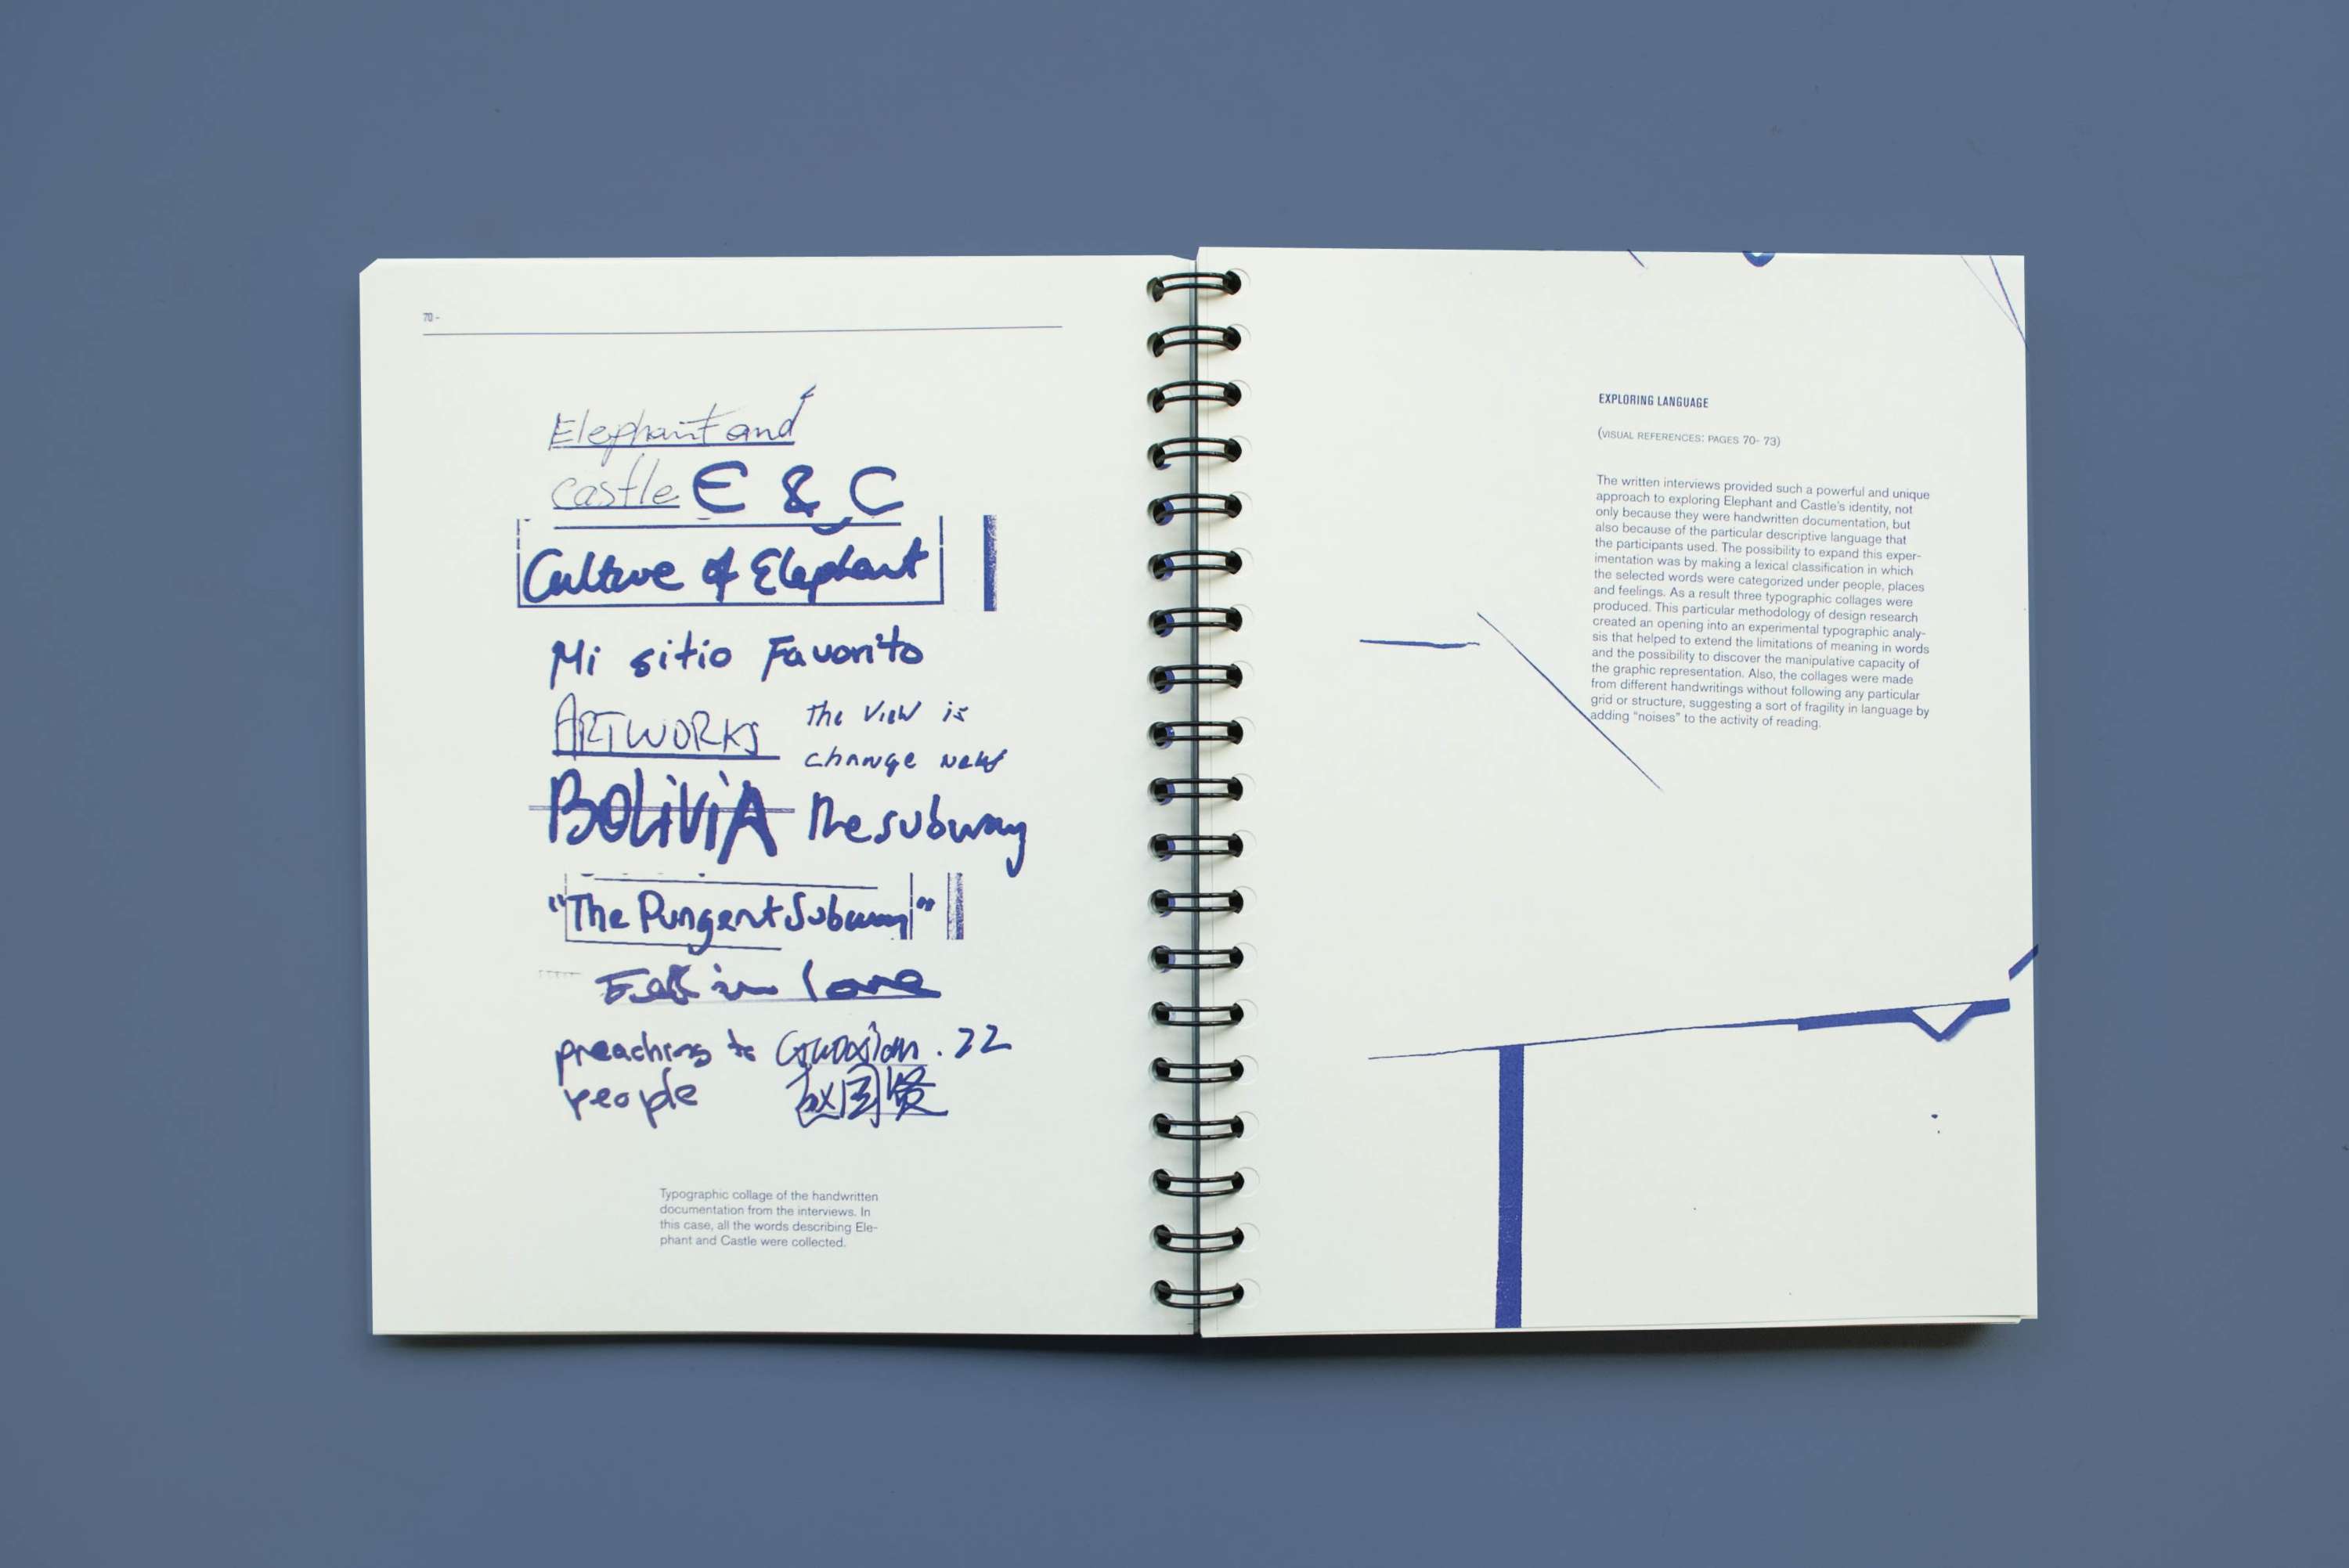 70 -
Elephant and
castle E & C
Culture of Elephant
Mi sitio Favorito
ARTWORKS the view is
change new
BOLIVIA The subway
"The Pungent Subway"
Fall in love
preaching to
people
. 22
Typographic collage of the handwritten
documentation from the interviews. In
this case, all the words describing Ele-
phant and Castle were collected.
EXPLORING LANGUAGE
(VISUAL REFERENCES: PAGES 70- 73)
The written interviews provided such a powerful and unique
approach to exploring Elephant and Castle's identity, not
only because they were handwritten documentation, but
also because of the particular descriptive language that
the participants used. The possibility to expand this exper-
imentation was by making a lexical classification in which
the selected words were categorized under people, places
and feelings. As a result three typographic collages were
produced. This particular methodology of design research
created an opening into an experimental typographic analy-
sis that helped to extend the limitations of meaning in words
and the possibility to discover the manipulative capacity of
the graphic representation. Also, the collages were made
from different handwritings without following any particular
grid or structure, suggesting a sort of fragility in language by
adding "noises" to the activity of reading.